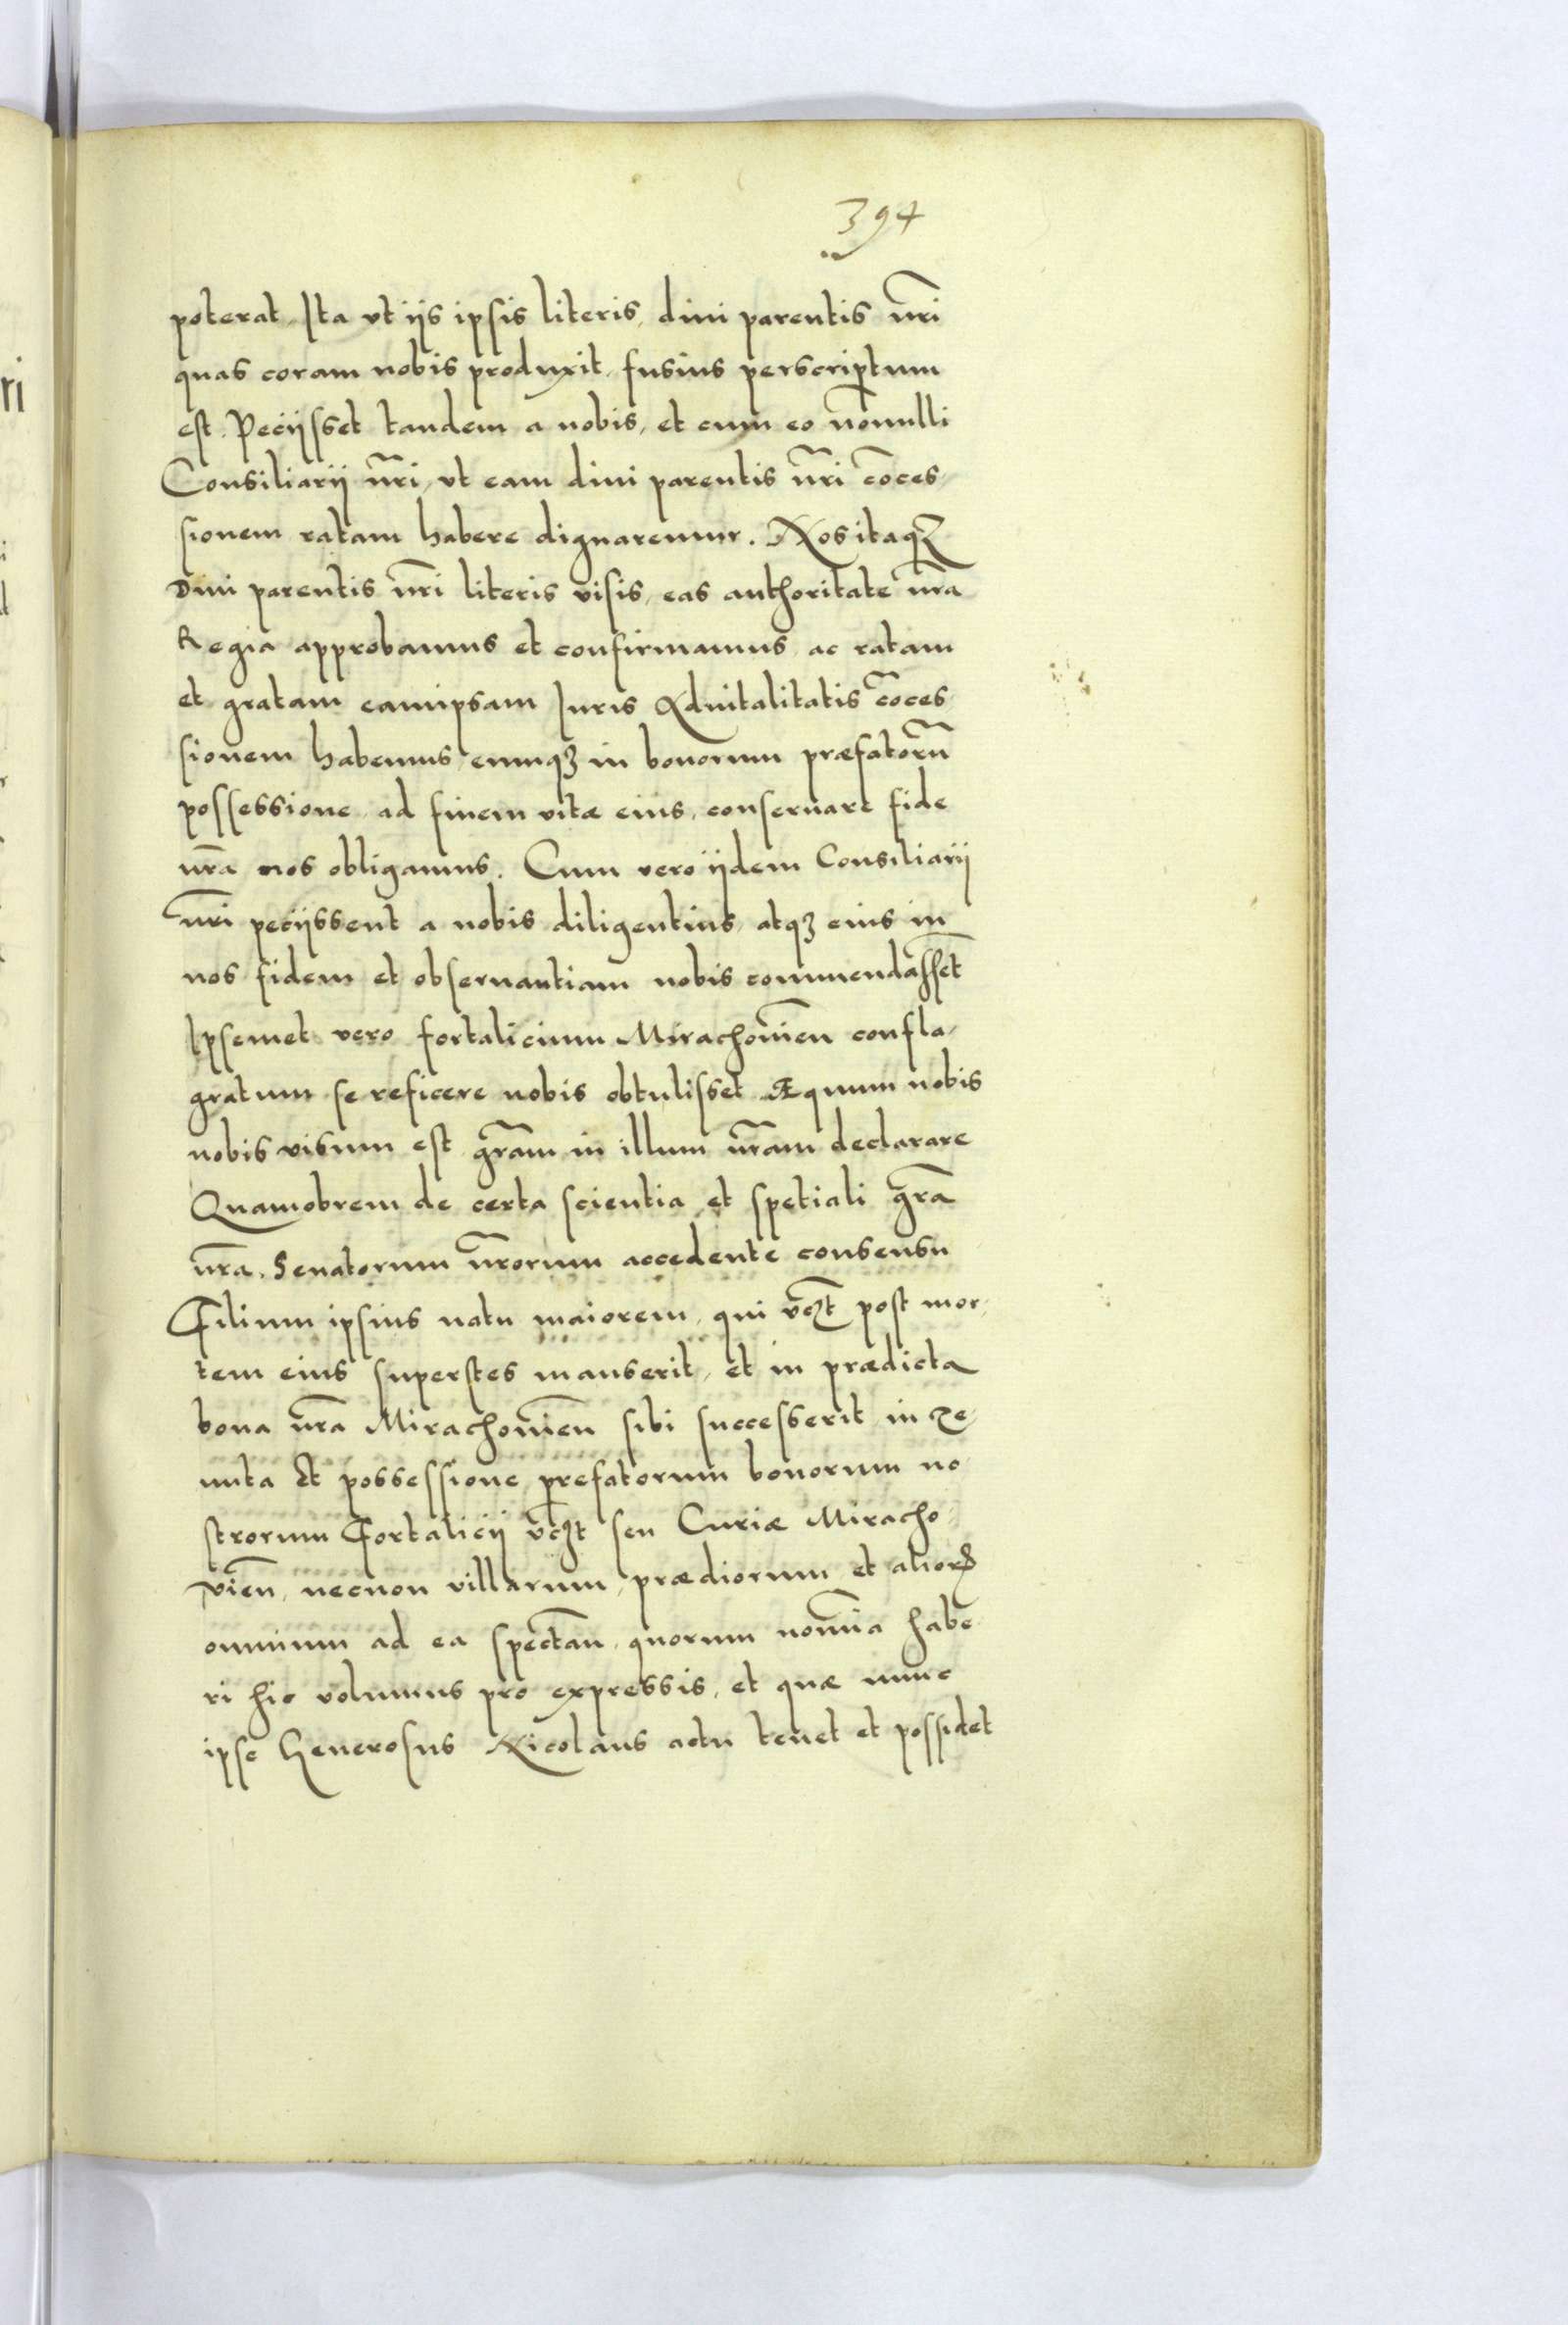 394
poterat, Ita vt ijs ipsis literis, diui parentis nr̃i
quas coram nobis produxit, fusius perscriptum
est. Peciisset tandem a nobis, et cum eo nonnulli
Consiliarij nr̃i, vt eam diui parentis nr̃i cõces,
sionem ratam habere dignaremur. Nos itaqȝ
Diui parentis nr̃i literis visis, eas authoritate nr̃a
Regia approbamus et confirmamus, ac ratam
et gratam eamipsam Iuris Aduitalitatis cõces
sionem habemus, eumqȝ in bonorum præfatorũ
possessione, ad finem vitæ eius, conseruare fide
nr̃a nos obligamus. Cum vero ijdem Consiliarij
nr̃i peciissent a nobis diligentius, atqȝ eius in
nos fidem et obseruantiam nobis commendassẽt
Ipsemet vero fortalicium Mirachouieñ confla,
gratum se reficere nobis obtulisset Æquum nobis
nobis visum est gr̃am in illum nr̃am declarare
Quamobrem de certa scientia et spetiali gr̃a
nr̃a. Senatorum nr̃orum accedente consensu
Filium ipsius natu maiorem, qui vcȝt post mor,
tem eius superstes manserit, et in prædicta
bona nr̃a Mirachouieñ sibi successerit in te,
nuta et possessione prefatorum bonorum no
strorum Fortalicij vcȝt seu Curiæ Miracho,
vieñ, necnon villarum, prædiorum et alioꝝ
omnium ad ea spectañ, quorum nomĩa habe
ri hic volumus pro expressis, et quæ nunc
ipse Generosus Nicolaus actu tenet et possidet